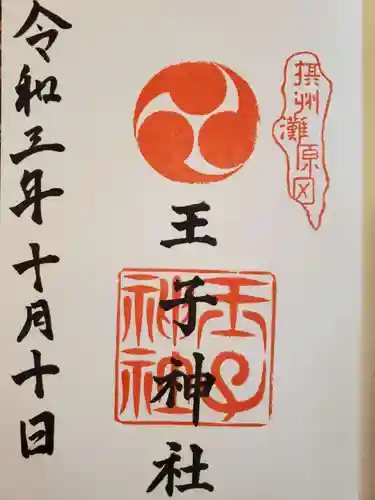 摂州
灘原区
王子神社
王子
神社
令和三年十月十日